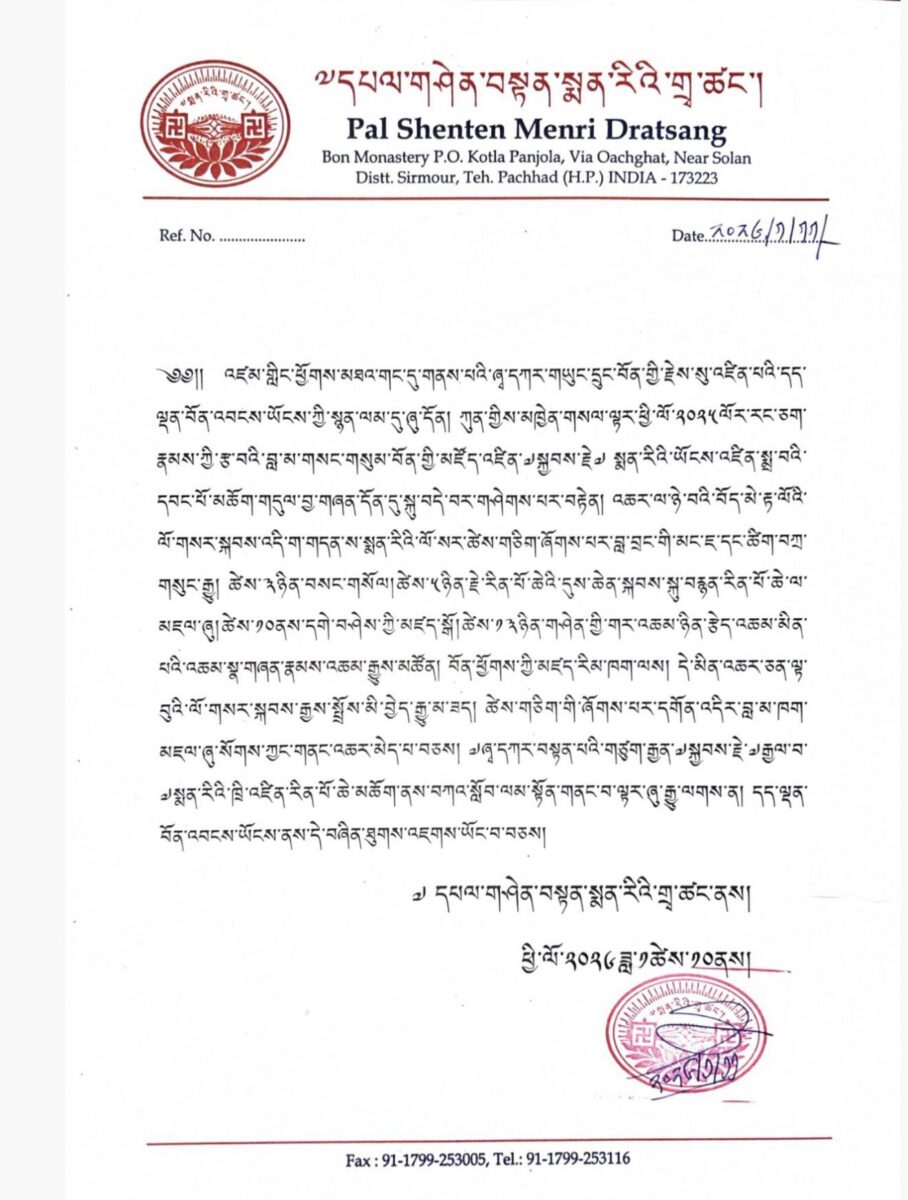 སྨན་རིའི་གྲྭ་ཚང་།
༧དཔལ་གཤེན་བསྟན་སྨན་རིའི་གྲྭ་ཚང་།
Pal Shenten Menri Dratsang
Bon Monastery P.O. Kotla Panjola, Via Oachghat, Near Solan
Distt. Sirmour, Teh. Pachhad (H.P.) INDIA - 173223
Ref. No. ......................
Date..༢༠༢༦/༡/༡༡
༄༅།། འཛམ་གླིང་ཕྱོགས་མཐའ་གང་དུ་གནས་པའི་ཞྭ་དཀར་གཡུང་དྲུང་བོན་གྱི་རྗེས་སུ་འཛིན་པའི་དད་
ལྡན་བོན་འབངས་ཡོངས་ཀྱི་སྙན་ལམ་དུ་ཞུ་དོན། ཀུན་གྱིས་མཁྱེན་གསལ་ལྟར་ཕྱི་ལོ་༢༠༢༥ལོར་རང་ཅག་
རྣམས་ཀྱི་རྩ་བའི་བླ་མ་གསང་གསུམ་བོན་གྱི་མཛོད་འཛིན་༧སྐྱབས་རྗེ་༧ སྨན་རིའི་ཡོངས་འཛིན་སྨྲ་བའི་
དབང་པོ་མཆོག་གདུལ་བྱ་གཞན་དོན་དུ་སྐུ་བདེ་བར་གཤེགས་པར་བརྟེན། འཆར་ལ་ཉེ་བའི་བོད་མེ་རྟ་ལོའི་
ལོ་གསར་སྐབས་འདི་ག་གདན་ས་སྨན་རིའི་ལོ་སར་ཚེས་གཅིག་ཞོགས་པར་བླ་བྲང་གི་མང་ཇ་དང་ཚིག་བཀྲ་
གསུང་རྒྱུ། ཚེས་༣ཉིན་བསང་གསོལ། ཚེས་༥ཉིན་རྗེ་རིན་པོ་ཆེའི་དུས་ཆེན་སྐབས་སྐུ་བརྙན་རིན་པོ་ཆེ་ལ་
མཇལ་ཞུ། ཚེས་༡༠ནས་དགེ་བཤེས་ཀྱི་མཛད་སྒོ། ཚེས་༡༣ཉིན་གཤེན་གྱི་གར་འཆམ་ཉིན་རྩེད་འཆམ་མིན་
པའི་འཆམ་སྣ་གཞན་རྣམས་འཆམ་རྒྱུས་མཚོན། བོན་ཕྱོགས་ཀྱི་མཛད་རིམ་ཁག་ལས། དེ་མིན་འཆར་ཅན་ལྟ་
བུའི་ལོ་གསར་སྐབས་རྒྱས་སྤྲོས་མི་བྱེད་རྒྱུ་མ་ཟད། ཚེས་གཅིག་གི་ཞོགས་པར་དགོན་འདིར་བླ་མ་ཁག་
མཇལ་ཞུ་སོགས་ཀྱང་གནང་འཆར་མེད་པ་བཅས། ༧ཞྭ་དཀར་བསྟན་པའི་གཙུག་རྒྱན་༧སྐྱབས་རྗེ་༧རྒྱལ་བ་
༧སྨན་རིའི་ཁྲི་འཛིན་རིན་པོ་ཆེ་མཆོག་ནས་བཀའ་སློབ་ལམ་སྟོན་གནང་བ་ལྟར་ཞུ་རྒྱུ་ལགས་ན། དད་ལྡན་
བོན་འབངས་ཡོངས་ནས་དེ་བཞིན་ཐུགས་འཇགས་ཡོང་བ་བཅས།
༧ དཔལ་གཤེན་བསྟན་སྨན་རིའི་གྲྭ་ཚང་ནས།
ཕྱི་ལོ་༢༠༢༦ ཟླ་༡ཚེས་༡༠ནས།
སྨན་རིའི་གྲྭ་ཚང་།
༢༠༢༦/༡/༡༡
Fax : 91-1799-253005, Tel.: 91-1799-253116